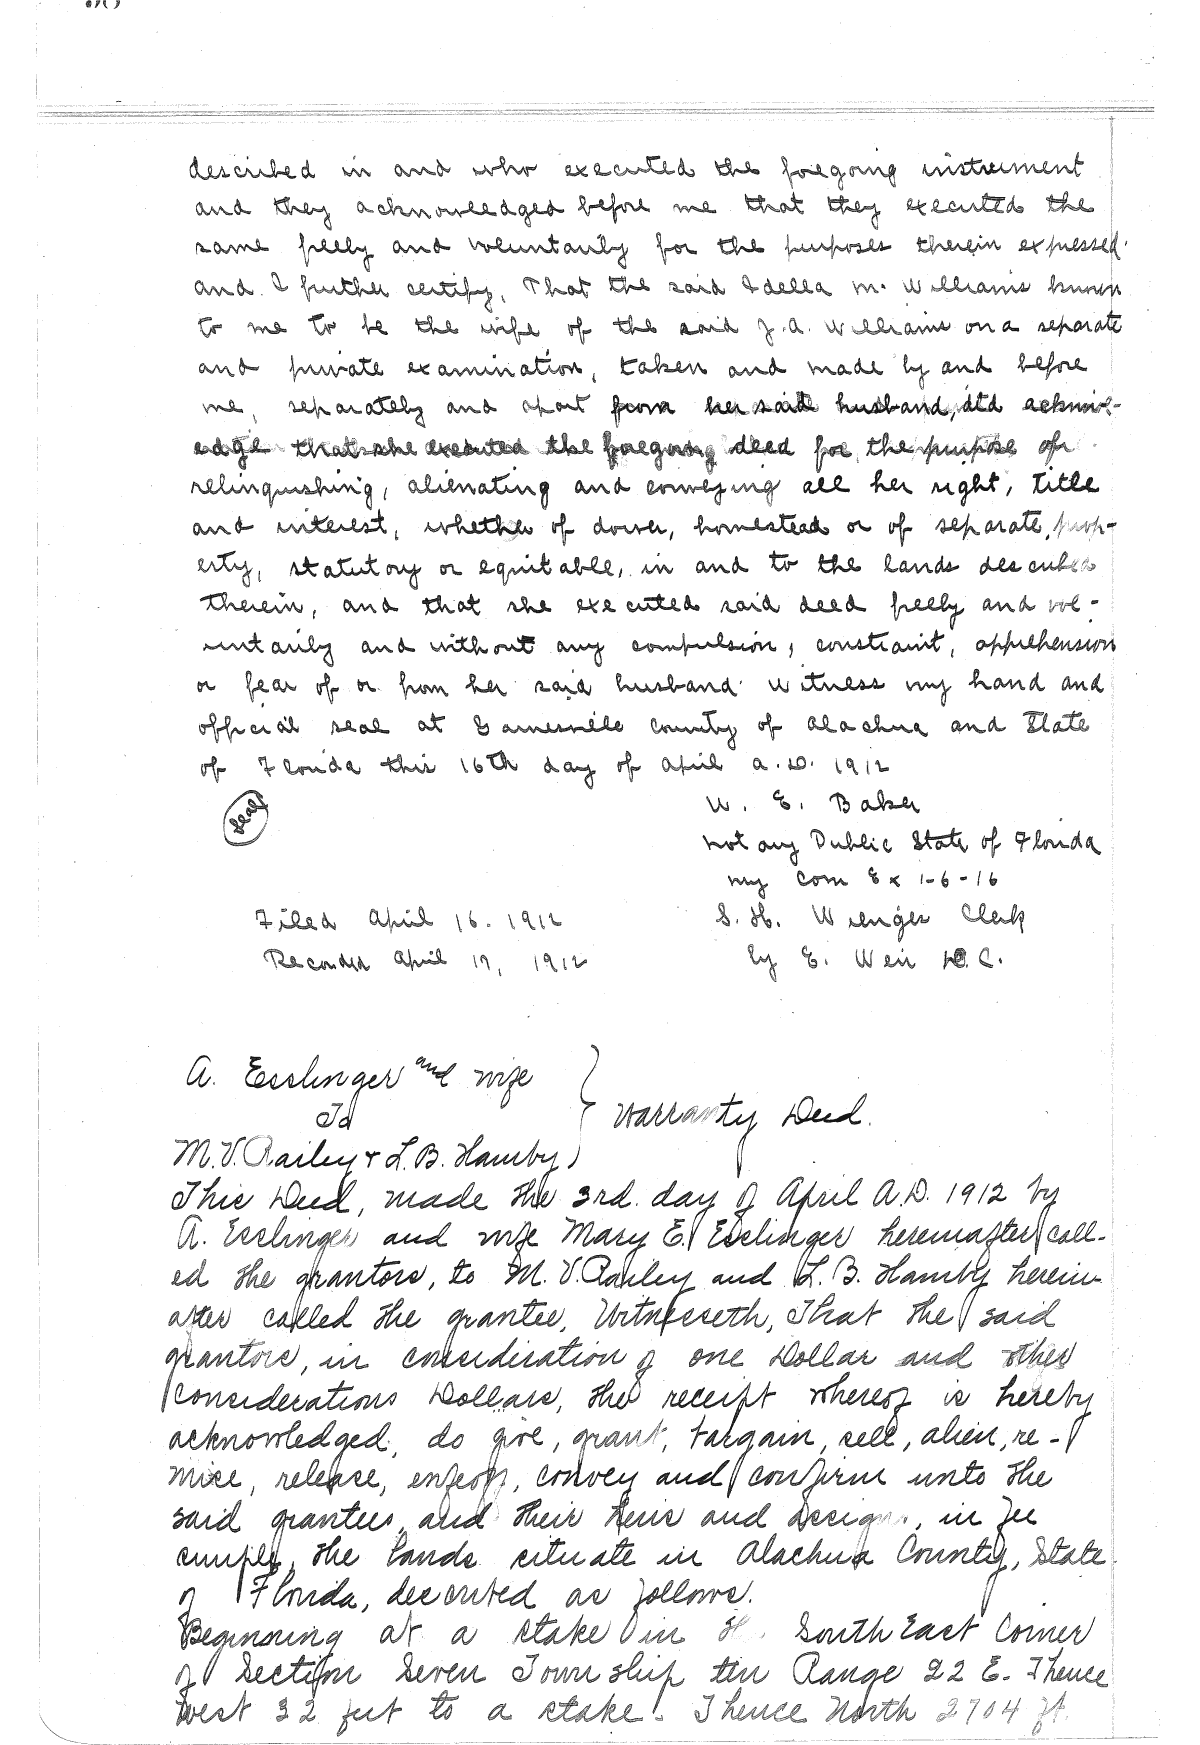 described in and who executed the foregoing instrument
and they acknowledged before me that they executed the
same freely and voluntarily for the purposes therein expressed.
and I further certify, That the said Idella M. Williams known
to me to be the wife of the said J. A. Williams on a separate
and private examination, taken and made by and before
me, separately and apart from her said husband, did acknowl-
edge that she executed the foregoing deed for the purpose of
relinquishing, alienating and conveying all her right, title
and interest, whether of dower, homestead or of separate prop-
erty, statutory or equitable, in and to the lands described
therein, and that she executed said deed freely and vol-
untarily and without any compulsion, constraint, apprehension
or fear of or from her said husband. Witness my hand and
official seal at Gainesville County of Alachua and State
of Florida this 16th day of April A.D. 1912
W. E. Baker
Seal
Notary Public State of Florida
my Com Ex 1-6-16
Filed April 16. 1912 S. H. Wienges Clerk
Recorded April 17, 1912 by E. Weir D.C.
A. Esslinger and wife
To
Warranty Deed.
M.V. Railey & L.B. Hamby
This Deed, made the 3rd. day of April A.D. 1912 by
A. Esslinger and wife Mary E. Esslinger hereinafter call-
ed the grantors, to M. V. Railey and L. B. Hamby herein-
after called the grantee, Witnesseth, That the said
grantors, in consideration of one Dollar and other
considerations Dollars, the receipt whereof is hereby
acknowledged, do give, grant, bargain, sell, alien, re-
mise, release, enfeoff, convey and confirm unto the
said grantees, and their heirs and assigns, in fee
simple, the lands situate in Alachua County, State
of Florida, described as follows.
Beginning at a stake in the South East Corner
of Section Seven Township ten Range 22 E. Thence
West 32 feet to a stake. Thence North 2704 ft.